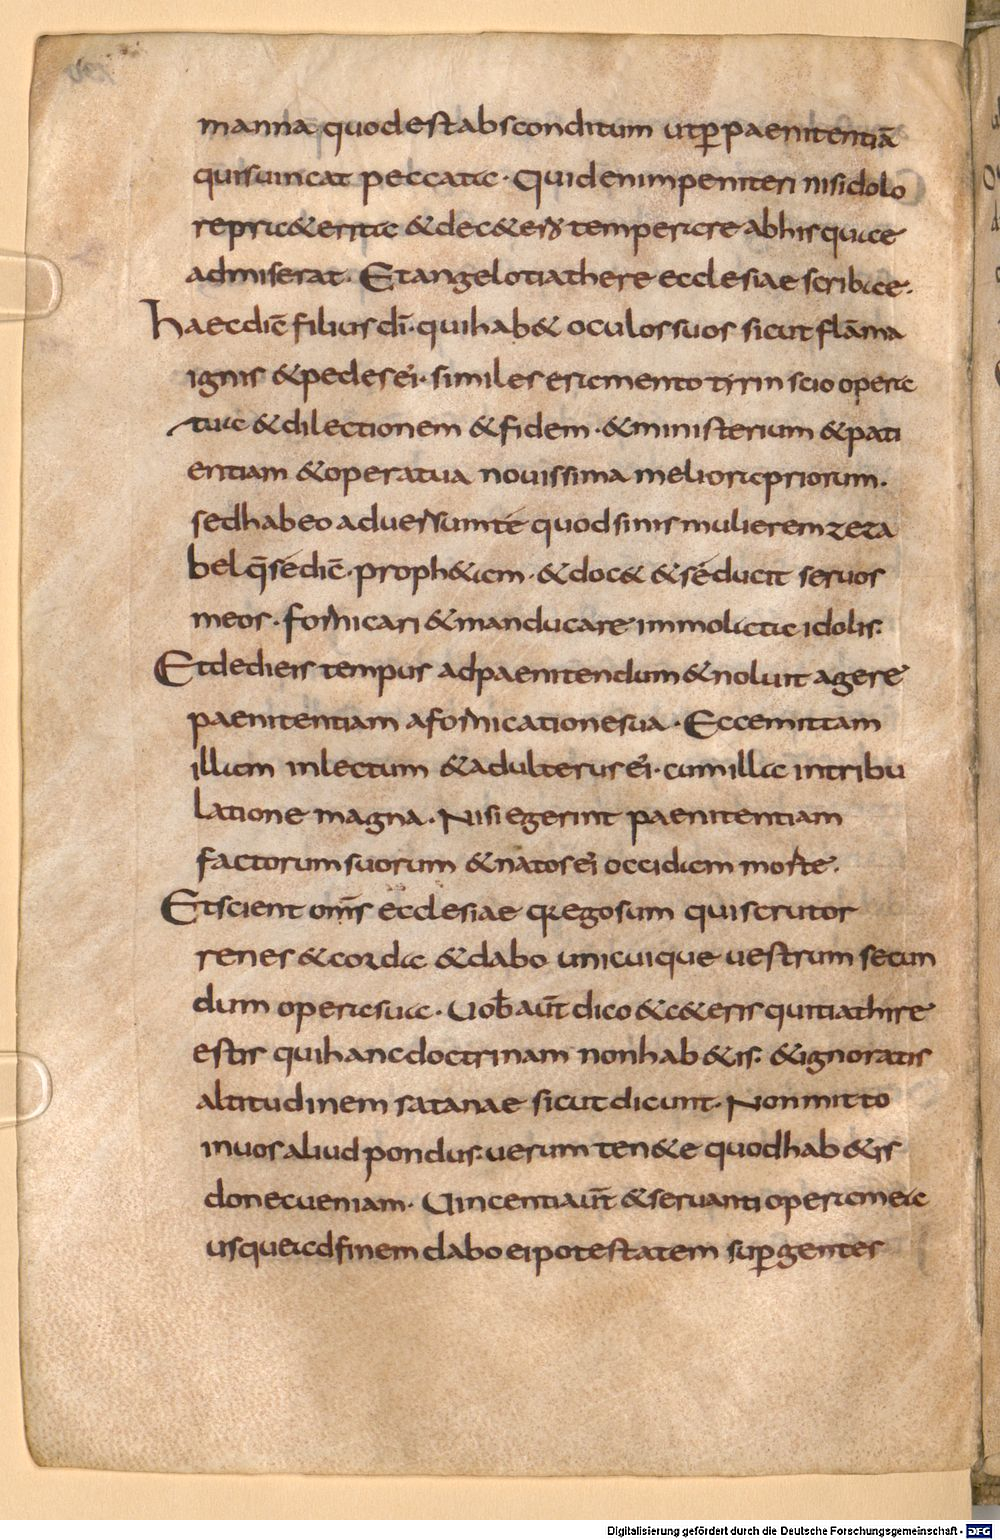 manna quod est absconditum ut p̄ paenitentiā
quis uincat peccata · Quid enim peniteri nisi dolo
re praeteritae & decetero temperare ab his quae
admiserat. Et angelo tiathere ecclesiae scribae.
haec diē filius dī · qui hab& oculos suos sicut flāma
ignis & pedes eī · similes eramento tyrin scio opera
tua & dilectionem & fidem · & ministerium & pati
entiam & opera tua nouissima meliora priorum.
sed habeo aduersum te quod sinis mulierem zeza
bel q̄ se diē · proph&am · & doc& & seducit seruos
meos · fornicari & manducare immolata idolis.
Et dedi eis tempus ad paenitendum & noluit agere
paenitentiam a fornicatione sua · Ecce mittam
illam in lectum & adulterus eī · cum illa in tribu
latione magna · Nisi egerint paenitentiam
factorum suorum & natos eī occidam morte.
Et scient om̄s ecclesiae q̄a ego sum qui scrutor
renes & corda & dabo unicuique uestrum secun
dum opera sua · Uob̄ aūt dico & c&eris qui tiathire
estis qui hanc doctrinam non hab&is. & ignoratis
altitudinem satanae sicut dicunt. Non mitto
in uos aliud pondus. uerum ten&e quod hab&is
donec ueniam. Uincenti aūt & seruanti opera mea
usque ad finem dabo ei potestatem sup̄ gentes
Digitalisierung gefördert durch die Deutsche Forschungsgemeinschaft - DFG